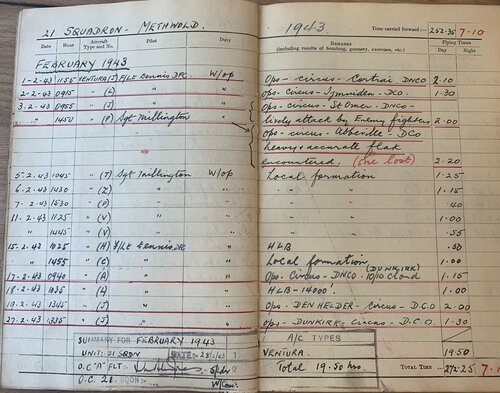 21 SQUADRON - METHWOLD.
Date Hour Aircraft Type and No. Pilot Duty
FEBRUARY 1943
1-2-43 1155 VENTURA (J) F/Lt Dennis DFC W/op
2-2-43 0915 " (L) " "
3-2-43 0955 " (J) " "
" 1450 " (F) Sgt Millington "
5.2.43 1045 " (T) Sgt Millington W/op
6.2.43 1430 " (Z) " "
7.2.43 " "
11.2.43 1125 " (V) " "
" " (V) " "
15.2.43 1025 " (H) F/Lt Dennis DFC "
" 1455 " (C) " "
17.2.43 0940 " (A) " "
18.2.43 1035 " " "
19.2.43 1345 " (J) " "
27.2.43 1335 " (J) " "
SUMMARY FOR FEBRUARY 1943
UNIT: 21 SQDN DATE:- 28/2/43
O.C "A" FLT:- S/Ldr
O.C. 21 SQDN:- W/Com.
1943
Time carried forward:- 252-35 7-10
Remarks Flying Times
(including results of bombing, gunnery, exercises, etc.) Day Night
Ops - circus - DNCO 2.10
Ops. Circus - Ijmuiden - DCO 1.30
Ops - circus - St Omer - DNCO -
lively attack by Enemy fighters 2.00
Ops - circus - Abbeville - DCO
heavy & accurate flak
encountered. (one lost) 2.20
Local formation 1.25
" " 1.15
" " .40
" " 1.00
" " .55
HLB .50
Local formation 1.00
(DUNKIRK)
Ops - Circus - DNCO - 10/10 cloud 1.15
HLB - 14000'. 1.00
Ops - DEN HELDER - Circus - D.C.O 2.00
Ops - DUNKIRK - Circus - D.C.O. 1.30
A/C TYPES
VENTURA 19.50
Total 19.50 hrs.
Total Time 272-25 7.1